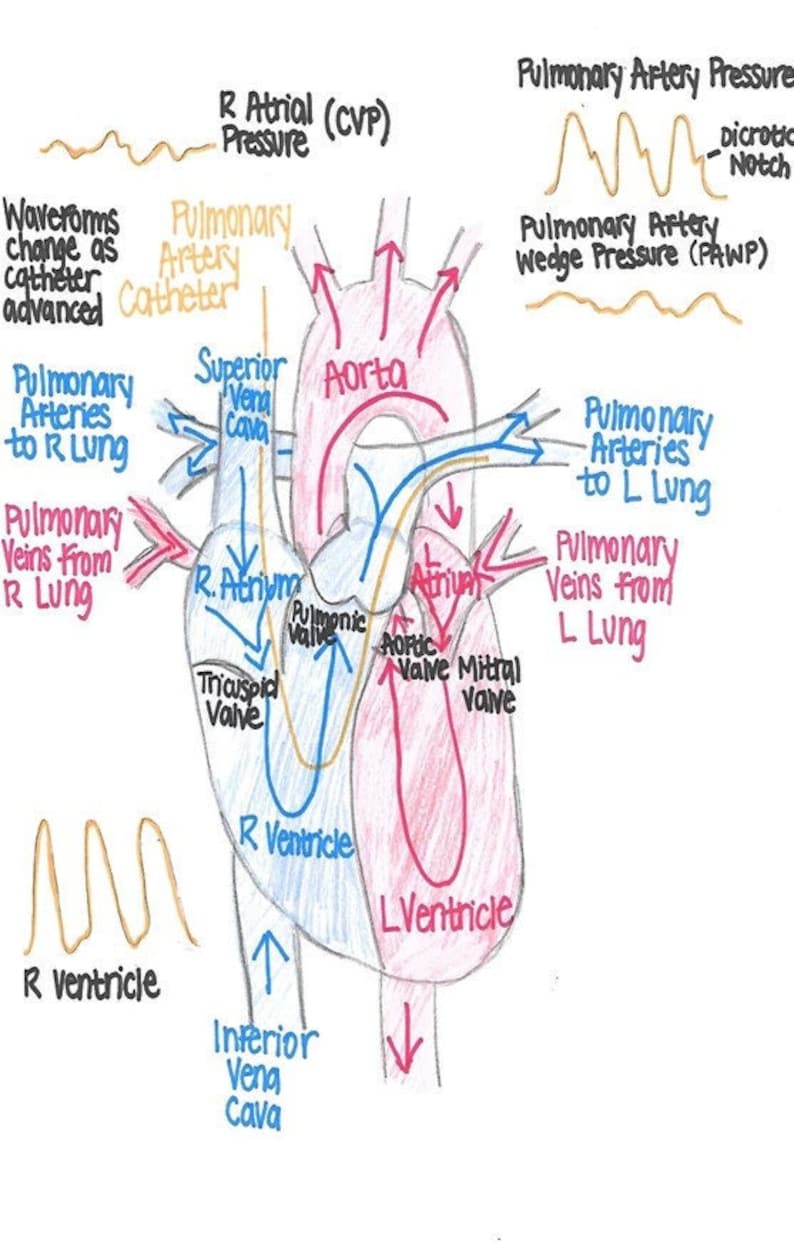 Pulmonary Artery Pressure
R Atrial (CVP)
Pressure
Dicrotic
Notch
Waveforms
change as
catheter
advanced
Pulmonary
Artery
Catheter
Pulmonary Artery
Wedge Pressure (PAWP)
Superior
Vena
Cava
Aorta
Pulmonary
Arteries
to R Lung
Pulmonary
Arteries
to L Lung
Pulmonary
Veins from
R Lung
Pulmonary
Veins from
L Lung
R. Atrium
L
Atrium
Pulmonic
Valve
Aortic
Valve
Mitral
Valve
Tricuspid
Valve
R Ventricle
L Ventricle
R Ventricle
Inferior
Vena
Cava